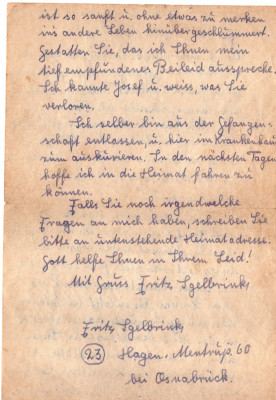 ist so sanft u. ohne etwas zu merken
ins andere Leben hinübergeschlummert.
Gestatten Sie, das ich Ihnen mein
tief empfundenes Beileid ausspreche.
Ich kannte Josef u. weiss, was Sie
verloren.
Ich selber bin aus der Gefangen-
schaft entlassen, u. hier im Krankenhaus
zum auskurieren. In den nächsten Tagen
hoffe ich in die Heimat fahren zu
können.
Falls Sie noch irgendwelche
Fragen an mich haben, schreiben Sie
bitte an untenstehende Heimatadresse.
Gott helfe Ihnen in Ihrem Leid!
Mit Gruss Fritz Igelbrink,
Fritz Igelbrink,
(23) Hagen, Mentrup, 60
bei Osnabrück.